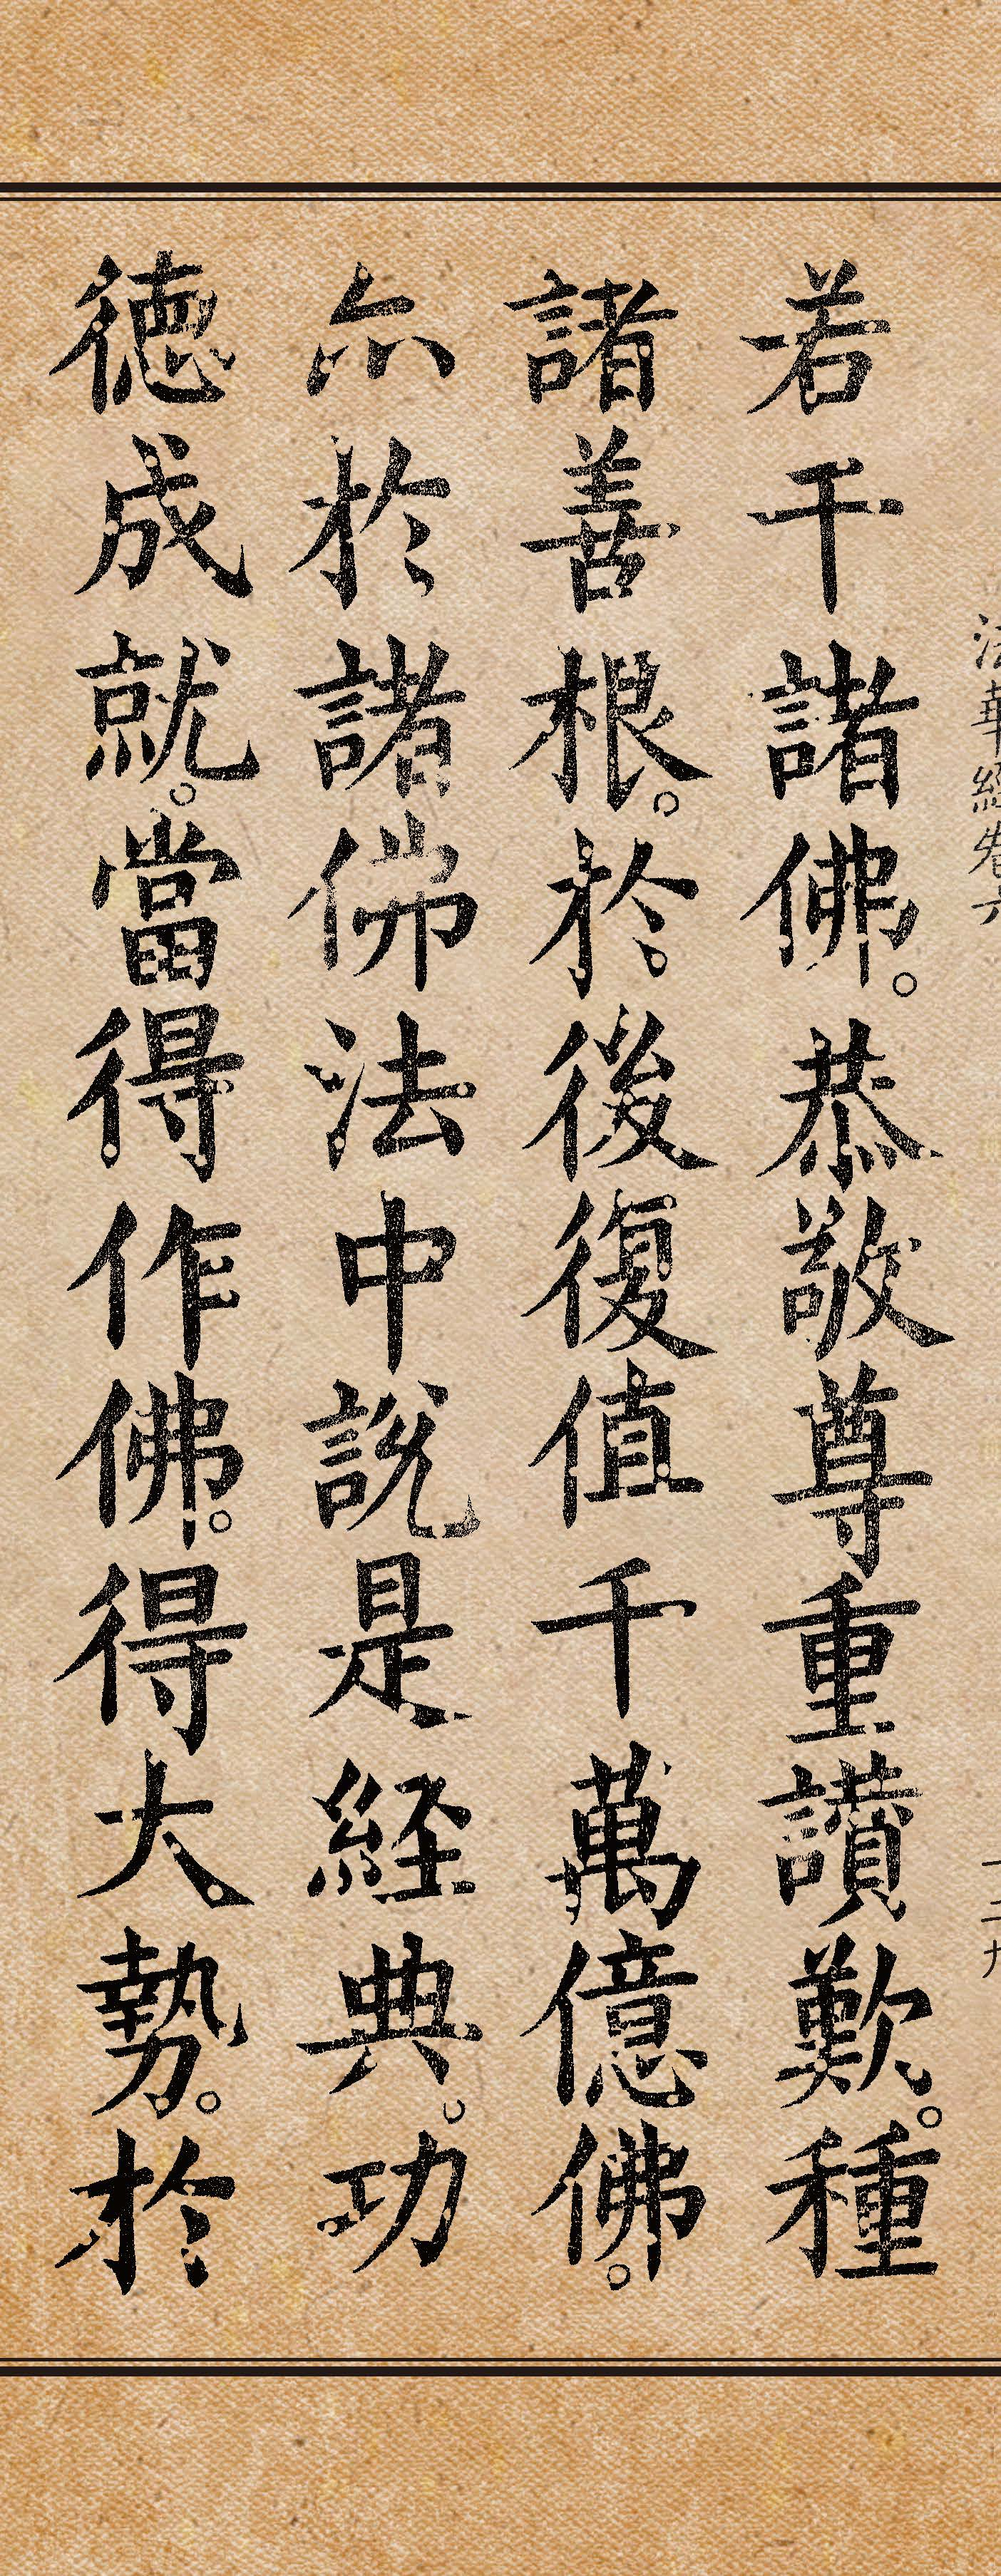 法華經卷六
一二九
若干諸佛。恭敬尊重讚歎。種
諸善根。於後復值千萬億佛。
尒於諸佛法中說是経典。功
徳成就。當得作佛。得大勢。於